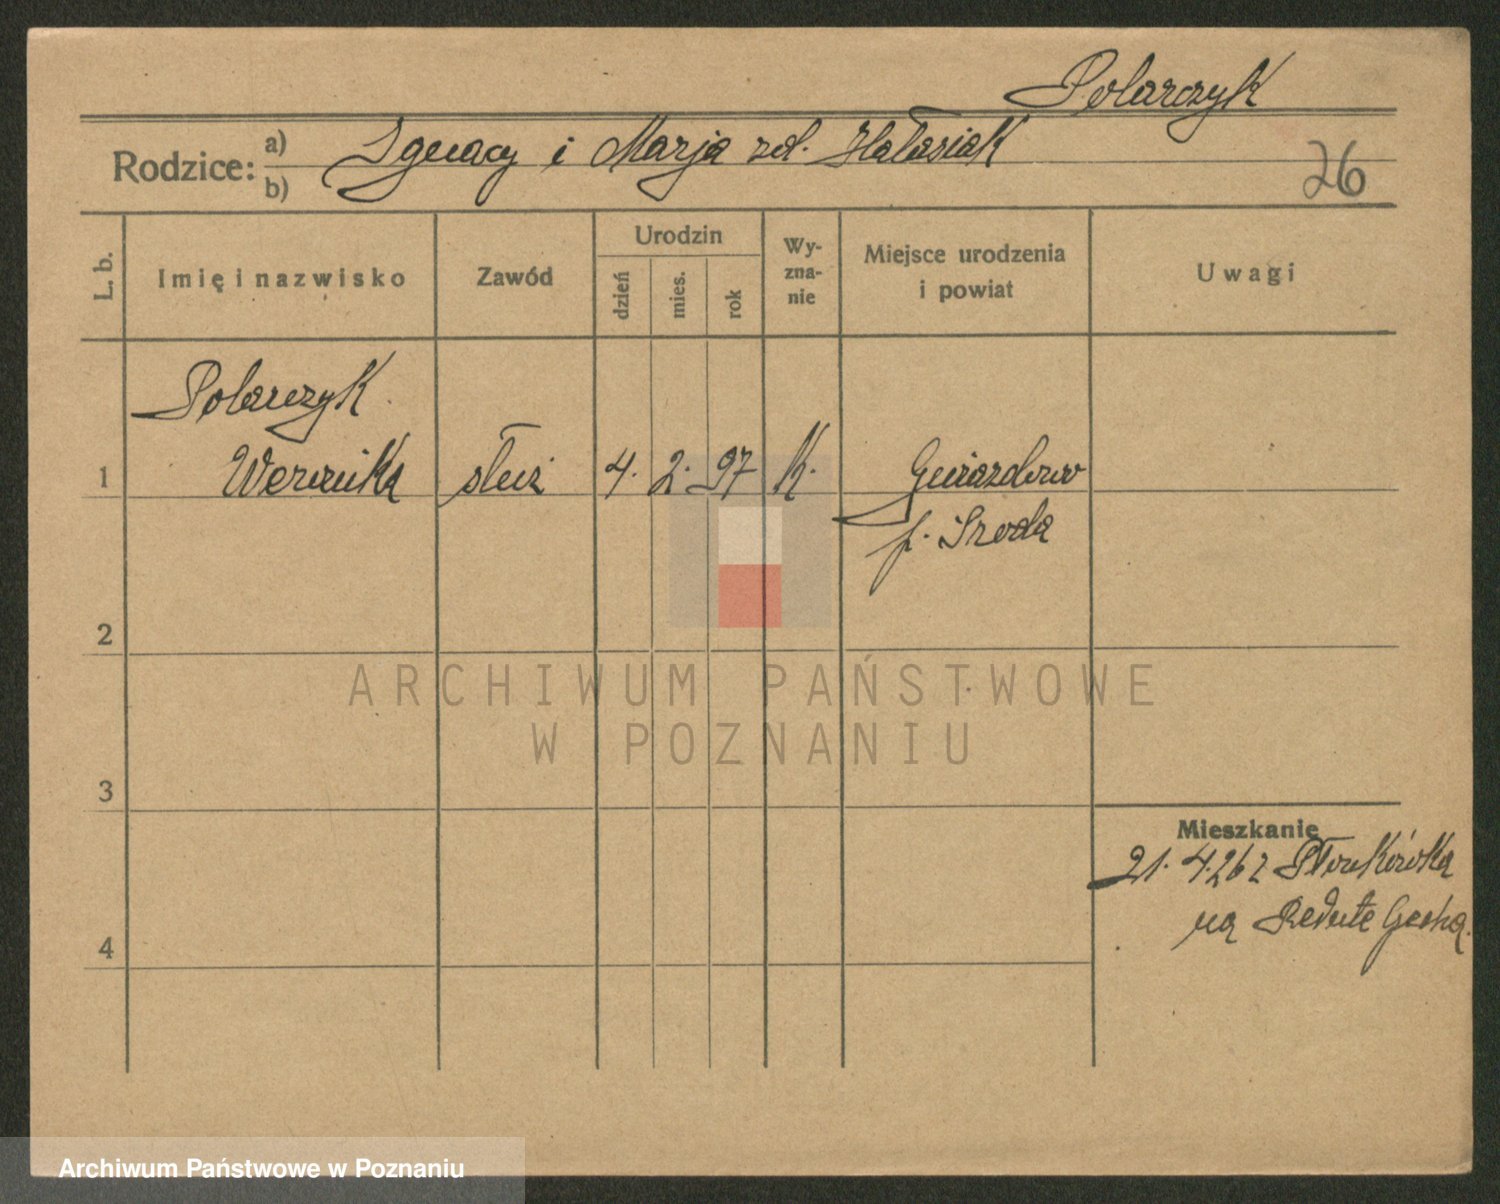 Polarczyk
Rodzice: a) Ignacy i Marja zd. Hałasiak
b)
26
L. b.
Imię i nazwisko
Zawód
Urodzin
dzień
mies.
rok
Wy-
zna-
nie
Miejsce urodzenia
i powiat
Uwagi
Polarczyk
1 Weronika służ 4. 2. 97 K. Gwiazdowo
p. Środa
2
3
4
Mieszkanie
21. 4.26 z
na Redutę
ARCHIWUM PAŃSTWOWE
W POZNANIU
Archiwum Państwowe w Poznaniu